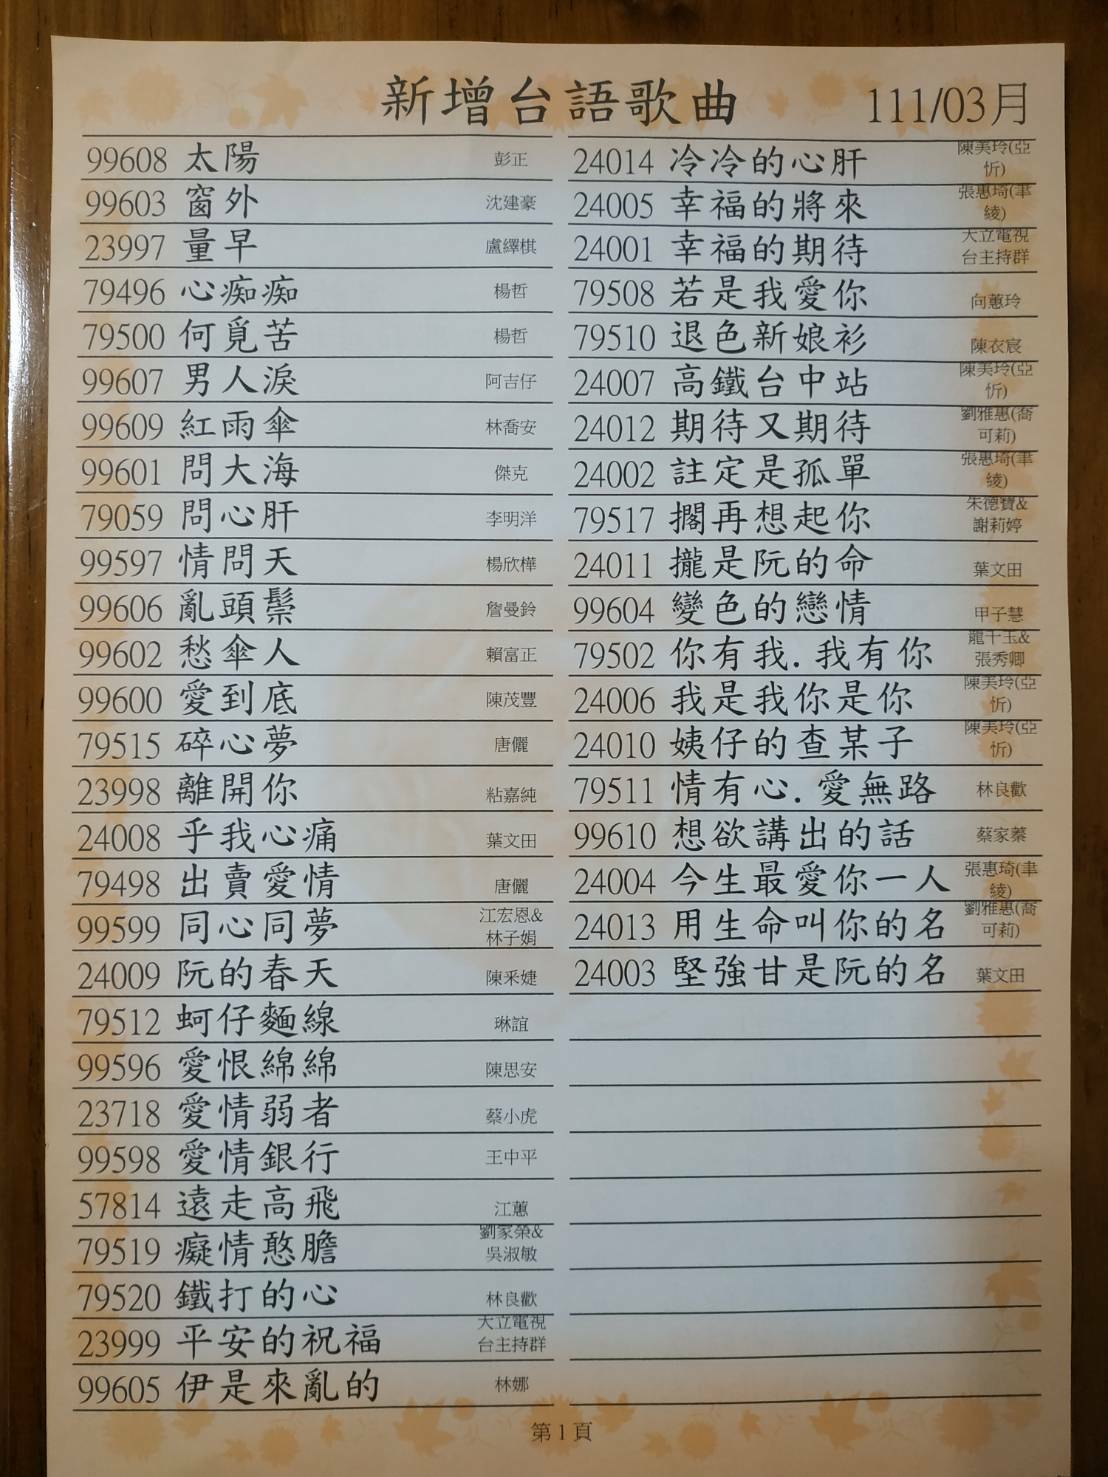 新增台語歌曲 111/03月
99608 太陽 彭正
99603 窗外 沈建豪
23997 量早 盧繹棋
79496 心痴痴 楊哲
79500 何覓苦 楊哲
99607 男人淚 阿吉仔
99609 紅雨傘 林喬安
99601 問大海 傑克
79059 問心肝 李明洋
99597 情問天 楊欣樺
99606 亂頭鬃 詹曼鈴
99602 愁傘人 賴富正
99600 愛到底 陳茂豐
79515 碎心夢 唐儷
23998 離開你 粘嘉純
24008 乎我心痛 葉文田
79498 出賣愛情 唐儷
99599 同心同夢 江宏恩&
林子娟
24009 阮的春天 陳釆婕
79512 蚵仔麵線 琳誼
99596 愛恨綿綿 陳思安
23718 愛情弱者 蔡小虎
99598 愛情銀行 王中平
57814 遠走高飛 江蕙
79519 癡情憨膽 劉家榮&
吳淑敏
79520 鐵打的心 林良歡
23999 平安的祝福 大立電視
台主持群
99605 伊是來亂的 林娜
24014 冷冷的心肝 陳美玲(亞
忻)
24005 幸福的將來 張惠琦(聿
綾)
24001 幸福的期待 大立電視
台主持群
79508 若是我愛你 向蕙玲
79510 退色新娘衫 陳衣宸
24007 高鐵台中站 陳美玲(亞
忻)
24012 期待又期待 劉雅惠(喬
可莉)
24002 註定是孤單 張惠琦(聿
綾)
79517 擱再想起你 朱德寶&
謝莉婷
24011 攏是阮的命 葉文田
99604 變色的戀情 甲子慧
79502 你有我.我有你 龍千玉&
張秀卿
24006 我是我你是你 陳美玲(亞
忻)
24010 姨仔的查某子 陳美玲(亞
忻)
79511 情有心.愛無路 林良歡
99610 想欲講出的話 蔡家蓁
24004 今生最愛你一人 張惠琦(聿
綾)
24013 用生命叫你的名 劉雅惠(喬
可莉)
24003 堅強甘是阮的名 葉文田
第1頁